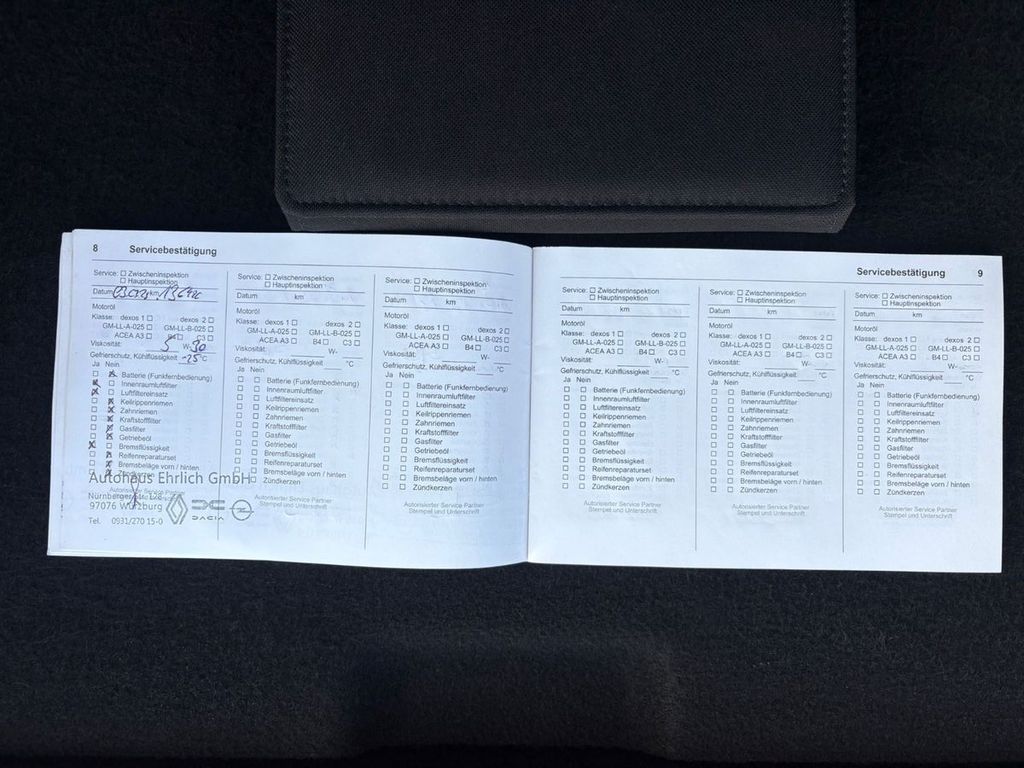 8 Servicebestätigung
Service: ☐ Zwischeninspektion
☐ Hauptinspektion
Datum km
Motoröl
Klasse: dexos 1 ☐ dexos 2 ☐
GM-LL-A-025 ☐ GM-LL-B-025 ☐
ACEA A3 ☐ B4 ☐ C3 ☐
Viskosität: 5 W-30
Gefrierschutz, Kühlflüssigkeit -25 °C
Ja Nein
Batterie (Funkfernbedienung)
Innenraumluftfilter
Luftfiltereinsatz
Keilrippenriemen
Zahnriemen
Kraftstofffilter
Gasfilter
Getriebeöl
Bremsflüssigkeit
Reifenreparaturset
Bremsbeläge vorn / hinten
Zündkerzen
Autohaus Ehrlich GmbH
Nürnberger Str.
97076 Würzburg
Tel. 0931/270 15-0
DACIA
Service: ☐ Zwischeninspektion
☐ Hauptinspektion
Datum km
Motoröl
Klasse: dexos 1 ☐ dexos 2 ☐
GM-LL-A-025 ☐ GM-LL-B-025 ☐
ACEA A3 ☐ B4 ☐ C3 ☐
Viskosität: W-
Gefrierschutz, Kühlflüssigkeit °C
Ja Nein
☐ ☐ Batterie (Funkfernbedienung)
☐ ☐ Innenraumluftfilter
☐ ☐ Luftfiltereinsatz
☐ ☐ Keilrippenriemen
☐ ☐ Zahnriemen
☐ ☐ Kraftstofffilter
☐ ☐ Gasfilter
☐ ☐ Getriebeöl
☐ ☐ Bremsflüssigkeit
☐ ☐ Reifenreparaturset
☐ ☐ Bremsbeläge vorn / hinten
☐ Zündkerzen
Autorisierter Service Partner
Stempel und Unterschrift
Service: ☐ Zwischeninspektion
☐ Hauptinspektion
Datum km
Motoröl
Klasse: dexos 1 ☐ dexos 2 ☐
GM-LL-A-025 ☐ GM-LL-B-025 ☐
ACEA A3 ☐ B4 ☐ C3 ☐
Viskosität: W-
Gefrierschutz, Kühlflüssigkeit °C
Ja Nein
☐ ☐ Batterie (Funkfernbedienung)
☐ ☐ Innenraumluftfilter
☐ ☐ Luftfiltereinsatz
☐ ☐ Keilrippenriemen
☐ ☐ Zahnriemen
☐ ☐ Kraftstofffilter
☐ ☐ Gasfilter
☐ ☐ Getriebeöl
☐ ☐ Bremsflüssigkeit
☐ ☐ Reifenreparaturset
☐ ☐ Bremsbeläge vorn / hinten
☐ ☐ Zündkerzen
Autorisierter Service Partner
Stempel und Unterschrift
Servicebestätigung 9
Service: ☐ Zwischeninspektion
☐ Hauptinspektion
Datum km
Motoröl
Klasse: dexos 1 ☐ dexos 2 ☐
GM-LL-A-025 ☐ GM-LL-B-025 ☐
ACEA A3 ☐ B4 ☐ C3 ☐
Viskosität: W-
Gefrierschutz, Kühlflüssigkeit °C
Ja Nein
☐ ☐ Batterie (Funkfernbedienung)
☐ ☐ Innenraumluftfilter
☐ ☐ Luftfiltereinsatz
☐ ☐ Keilrippenriemen
☐ ☐ Zahnriemen
☐ ☐ Kraftstofffilter
☐ ☐ Gasfilter
☐ ☐ Getriebeöl
☐ ☐ Bremsflüssigkeit
☐ ☐ Reifenreparaturset
☐ ☐ Bremsbeläge vorn / hinten
☐ ☐ Zündkerzen
Autorisierter Service Partner
Stempel und Unterschrift
Service: ☐ Zwischeninspektion
☐ Hauptinspektion
Datum km
Motoröl
Klasse: dexos 1 ☐ dexos 2 ☐
GM-LL-A-025 ☐ GM-LL-B-025 ☐
ACEA A3 ☐ B4 ☐ C3 ☐
Viskosität: W-
Gefrierschutz, Kühlflüssigkeit °C
Ja Nein
☐ ☐ Batterie (Funkfernbedienung)
☐ ☐ Innenraumluftfilter
☐ ☐ Luftfiltereinsatz
☐ ☐ Keilrippenriemen
☐ ☐ Zahnriemen
☐ ☐ Kraftstofffilter
☐ ☐ Gasfilter
☐ ☐ Getriebeöl
☐ ☐ Bremsflüssigkeit
☐ ☐ Reifenreparaturset
☐ ☐ Bremsbeläge vorn / hinten
☐ ☐ Zündkerzen
Autorisierter Service Partner
Stempel und Unterschrift
Service: ☐ Zwischeninspektion
☐ Hauptinspektion
Datum km
Motoröl
Klasse: dexos 1 ☐ dexos 2 ☐
GM-LL-A-025 ☐ GM-LL-B-025 ☐
ACEA A3 ☐ B4 ☐ C3 ☐
Viskosität: W-
Gefrierschutz, Kühlflüssigkeit °C
Ja Nein
☐ ☐ Batterie (Funkfernbedienung)
☐ ☐ Innenraumluftfilter
☐ ☐ Luftfiltereinsatz
☐ ☐ Keilrippenriemen
☐ ☐ Zahnriemen
☐ ☐ Kraftstofffilter
☐ ☐ Gasfilter
☐ ☐ Getriebeöl
☐ ☐ Bremsflüssigkeit
☐ ☐ Reifenreparaturset
☐ ☐ Bremsbeläge vorn / hinten
☐ ☐ Zündkerzen
Autorisierter Service Partner
Stempel und Unterschrift